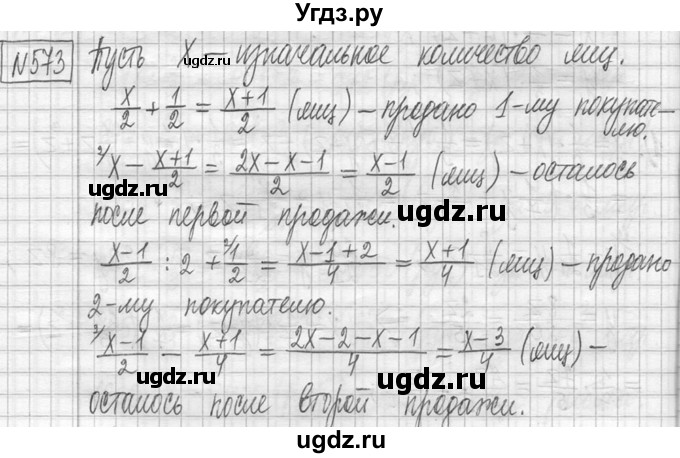 Угдз.ру
№573 Пусть х – изначальное количество яиц.
x/2 + 1/2 = x+1/2 (яиц) – продано 1-му покупате-
лю.
²⁾x – x+1/2 = 2x–x–1/2 = x–1/2 (яиц) – осталось
ugdz.ru
ugdz.ru
после первой продажи.
ugdz.ru
x–1/2 : 2 + ²⁾1/2 = x–1+2/4 = x+1/4 (яиц) – продано
2-му покупателю.
ugdz.ru
²⁾x–1/2 – x+1/4 = 2x–2–x–1/4 = x–3/4 (яиц) –
ugdz.ru
осталось после второй продажи.
ugdz.ru